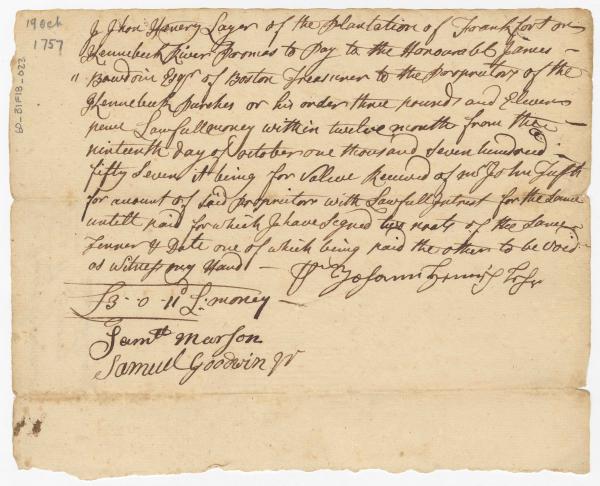 19 Oct
1757
60-31F18-022
I Jhon Hanery Layer of the Plantation of Frankfort on
Kennebeck River Promes to Pay to the Honourabl James
Bowdoin Esqr of Boston Treasurer to the Propriators of the
Kennebeck Purches or his order three pounds and Eleven
pence Lawfull money within twelve month from the
ninteenth Day of October one thousand seven hundred
fifty Seven it being for vallue Received of mr John Tufts
for amount of said Propriators with Lawfull Intrest for the same
untill paid for which I have Signed two noats of the Same
Tenner & Date one of which being paid the other to be Void
as Witness my Hand
£3-0-11d L: money
Samll Marson
Samuel Goodwin Jr